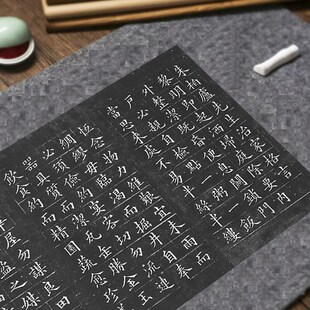 朱柏盧先生治家格言
黎明即起洒掃庭除要內
外整潔既昏便息關鎖門
戶必親自檢點一粥一飯
當思來處不易半絲半縷
恆念物力維艱宜未雨而
綢繆毋臨渴而掘井自奉
必須儉約宴客切勿流連
器具質而潔瓦缶勝金玉
飲食約而精園蔬愈珍
屋勿謀良田
之媒